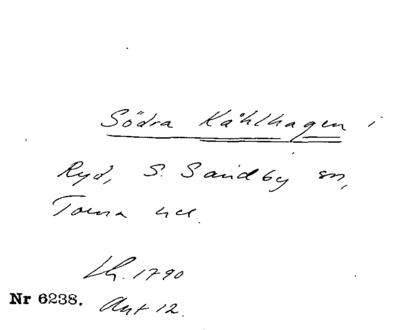 Södra Kåhlhagen i
Ryd, S. Sandby sn,
Torna hd.
Lh. 1790
Nr 6238. Akt 12.